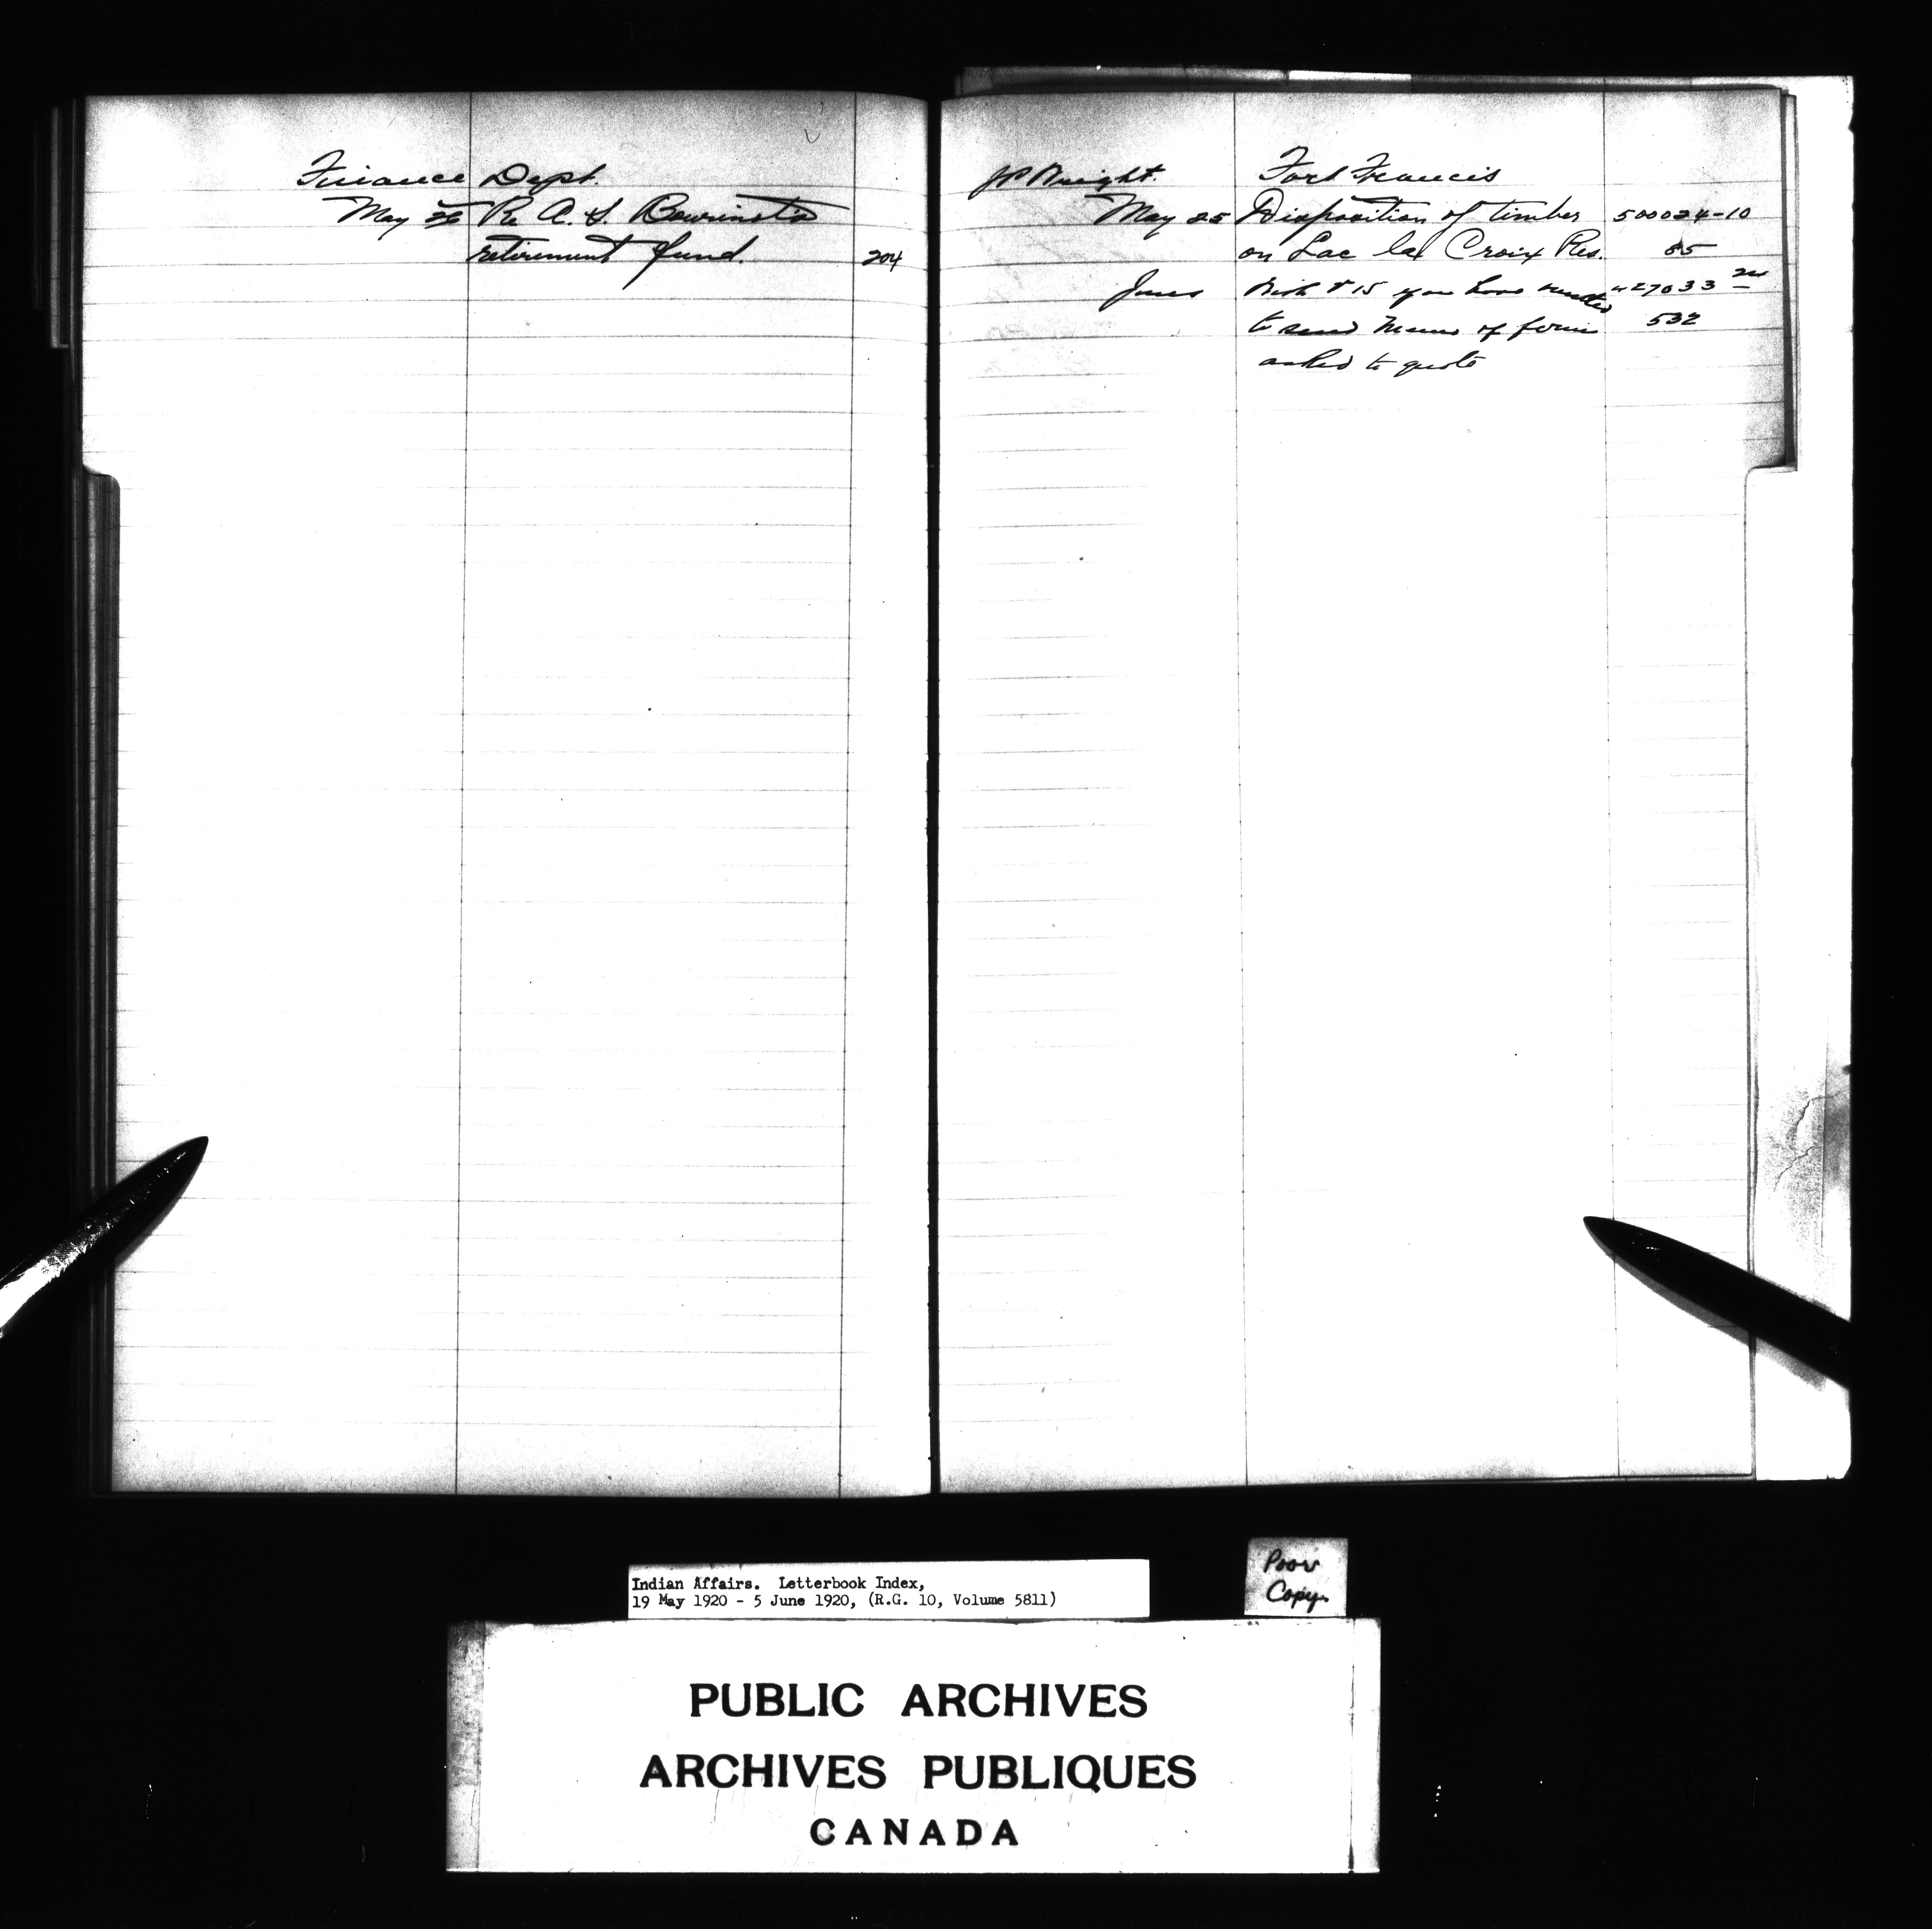 Finance Dept.
May 26 Re A. S.
retirement fund. 204
J P Wright. Fort Francis
May 25 Disposition of timber 500024-10
on Lac la Croix Res. 85
June & 15 you have 427033
to send Memo of firms 532
asked to quote
Indian Affairs. Letterbook Index,
19 May 1920 - 5 June 1920, (R.G. 10, Volume 5811)
Poor
Copy.
PUBLIC ARCHIVES
ARCHIVES PUBLIQUES
CANADA